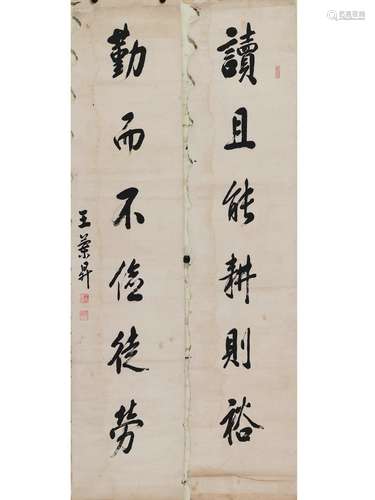 讀且能耕則裕
勤而不儉徒勞
王葉昇